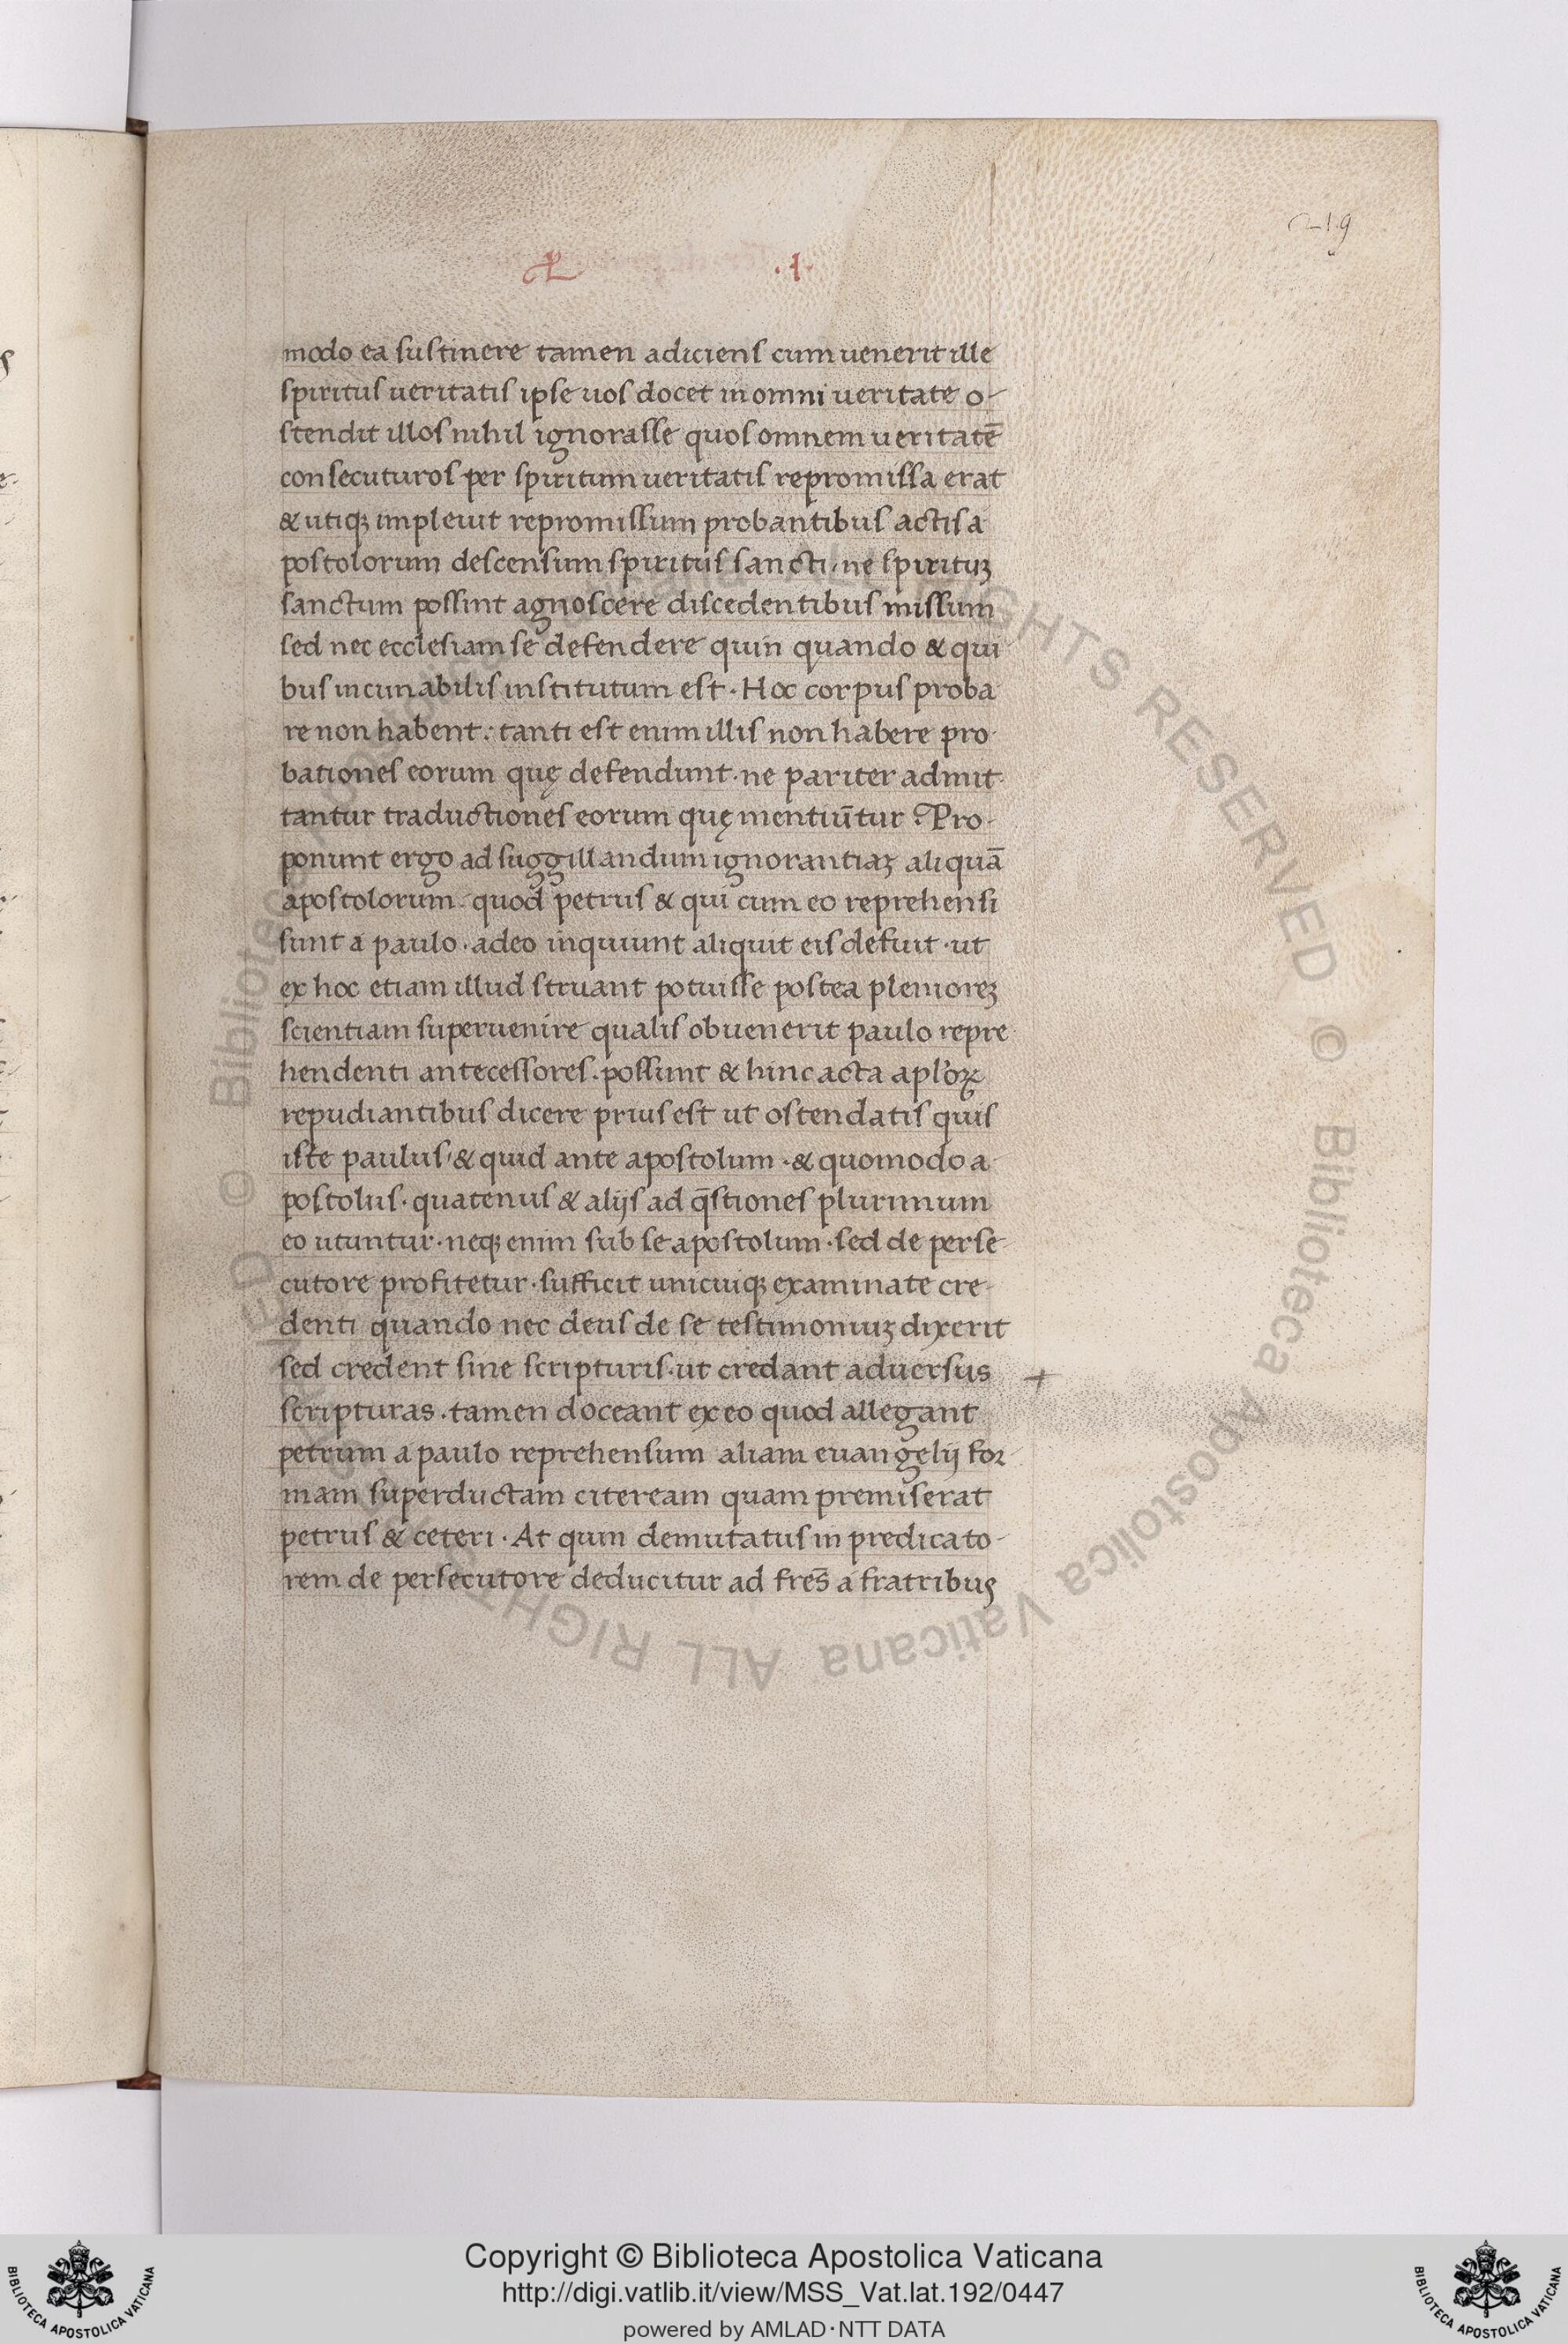 219
·I·
modo ea sustinere tamen adiciens cum uenerit ille
spiritus ueritatis ipse uos docet in omni ueritate o-
stendit illos nihil ignorasse quos omnem ueritatē
consecuturos per spiritum ueritatis repromissa erat
& utiqꝫ impleuit repromissum probantibus actis a
postolorum descensum spiritus sancti, ne spirituꝫ
sanctum possint agnoscere discedentibus missum
sed nec ecclesiam se defendere quin quando & qui
bus incunabilis institutum est · Hoc corpus proba
re non habent: tanti est enim illis non habere pro-
bationes eorum quę defendunt · ne pariter admit-
tantur traductiones eorum quę mentiūtur? Pro-
ponunt ergo ad suggillandum ignorantiaꝫ aliquā
apostolorum · quod petrus & qui cum eo reprehensi
sunt a paulo · adeo inquiunt aliquit eis defuit · ut
ex hoc etiam illud struant potuisse postea plenioreꝫ
scientiam superuenire qualis obuenerit paulo repre
hendenti antecessores · possunt & hinc acta apl'oꝝ
repudiantibus dicere prius est ut ostendatis quis
iste paulus, & quid ante apostolum · & quomodo a-
postolus · quatenus & alijs ad q̄stiones plurimum
eo utuntur · neqꝫ enim sub se apostolum · sed de perse-
cutore profitetur · sufficit unicuiqꝫ examinate cre-
denti quando nec deus de se testimoniuꝫ dixerit
sed credent sine scripturis · ut credant aduersus +
scripturas · tamen doceant ex eo quod allegant
petrum a paulo reprehensum aliam euangelij for-
mam superductam citeream quam premiserat
petrus & ceteri · At qum demutatus in predicato-
rem de persecutore deducitur ad fres̄ a fratribus
© Biblioteca Apostolica Vaticana ALL RIGHTS RESERVED © Biblioteca Apostolica Vaticana ALL RIGHTS RESERVED
BIBLIOTECA APOSTOLICA VATICANA
Copyright © Biblioteca Apostolica Vaticana
http://digi.vatlib.it/view/MSS_Vat.lat.192/0447
powered by AMLAD·NTT DATA
BIBLIOTECA APOSTOLICA VATICANA